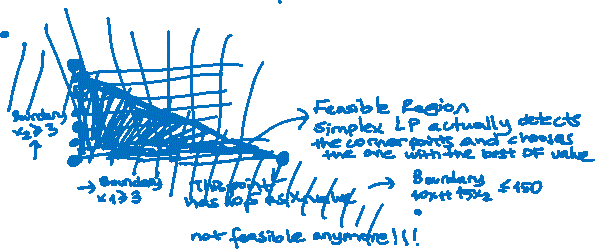 Feasible Region
simplex LP actually detects
the corner points and chooses
the one with the best OF value
Boundary
x₂ ≥ 3
Boundary
x₁ ≥ 3
This point
has as x value
Boundary
10x₁ + 15x₂ ≤ 150
not feasible anymore!!!